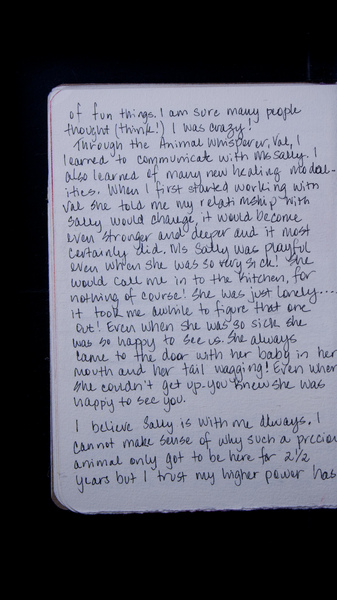 of fun things. I am sure many people
thought (think!) I was crazy!
Through the Animal Whisperer, Val, I
learned to communicate with Ms Sally. I
also learned of many new healing modal-
ities. When I first started working with
Val she told me my relationship with
Sally would change, it would become
even stronger and deeper and it most
certainly did. Ms Sally was playful
even when she was so very sick! She
would call me in to the kitchen, for
nothing of course! She was just lonely....
it took me awhile to figure that one
out! Even when she was so sick she
was so happy to see us. She always
came to the door with her baby in her
mouth and her tail wagging! Even when
she couldn't get up-you knew she was
happy to see you.
I believe Sally is with me always. I
cannot make sense of why such a precious
animal only got to be here for 2 1/2
years but I trust my higher power has